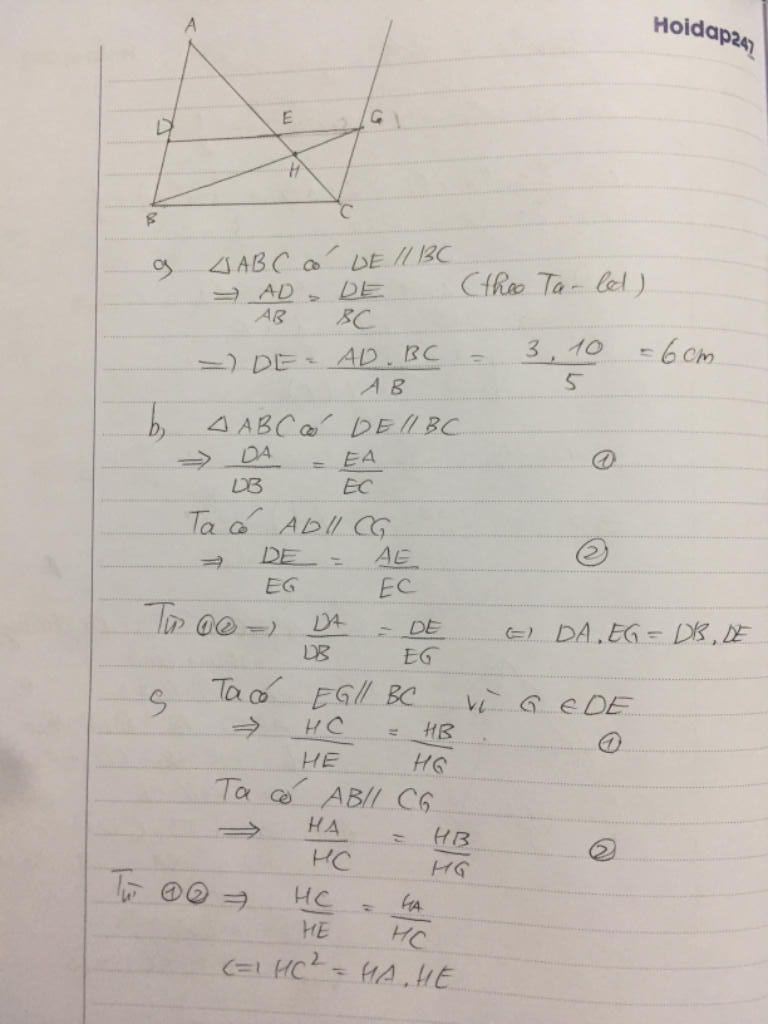 Hoidap247
A
D
E
G
H
B
C
a, △ABC có DE // BC
⇒ AD/AB = DE/BC (theo Ta-let)
⇒ DE = AD.BC/AB = 3.10/5 = 6cm
b, △ABC có DE // BC
⇒ DA/DB = EA/EC ①
Ta có AD // CG
⇒ DE/EG = AE/EC ②
Từ ①② ⇒ DA/DB = DE/EG ⇔ DA.EG = DB.DE
c, Ta có EG // BC vì G ∈ DE
⇒ HC/HE = HB/HG ①
Ta có AB // CG
⇒ HA/HC = HB/HG ②
Từ ①② ⇒ HC/HE = HA/HC
⇔ HC² = HA.HE